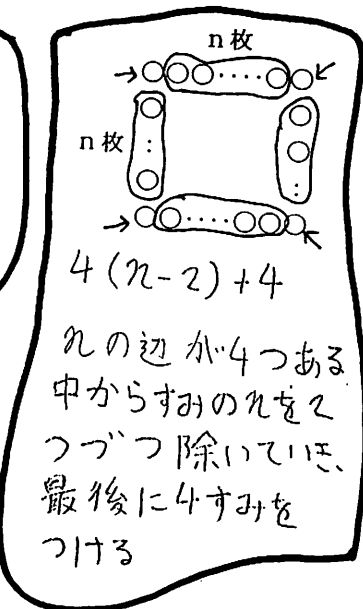 n枚
n枚
4(n-2)+4
nの辺が4つある
中からすみのnを2
つづつ除いていき、
最後に4すみを
つける